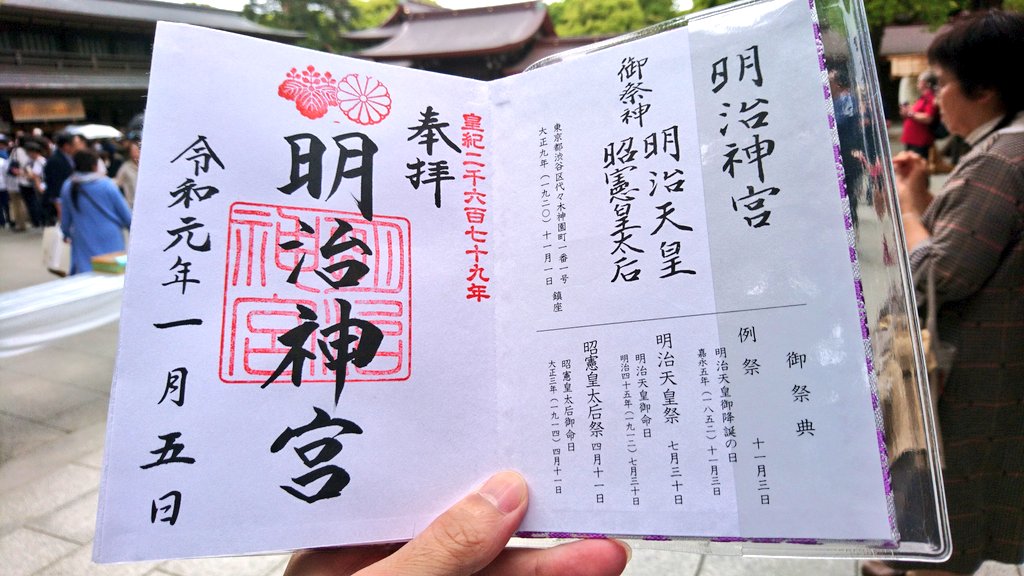 明治神宮
御祭神 明治天皇
昭憲皇太后
東京都渋谷区代々木神園町一番一号
大正九年(一九二〇)十一月一日 鎮座
御祭典
例祭 十一月三日
明治天皇御降誕の日
嘉永五年(一八五二)十一月三日
明治天皇祭 七月三十日
明治天皇御命日
明治四十五年(一九一二)七月三十日
昭憲皇太后祭 四月十一日
昭憲皇太后御命日
大正三年(一九一四)四月十一日
皇紀二千六百七十九年
奉拝
明治神宮
明治神宮
令和元年一月五日